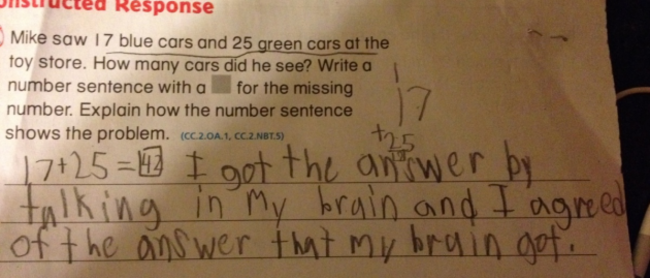 Constructed Response
Mike saw 17 blue cars and 25 green cars at the
toy store. How many cars did he see? Write a
number sentence with a for the missing
number. Explain how the number sentence
shows the problem. (CC.2.OA.1, CC.2.NBT.5)
1
17
+25
42
17+25=42 I got the answer by
talking in my brain and I agreed
of the answer that my brain got.